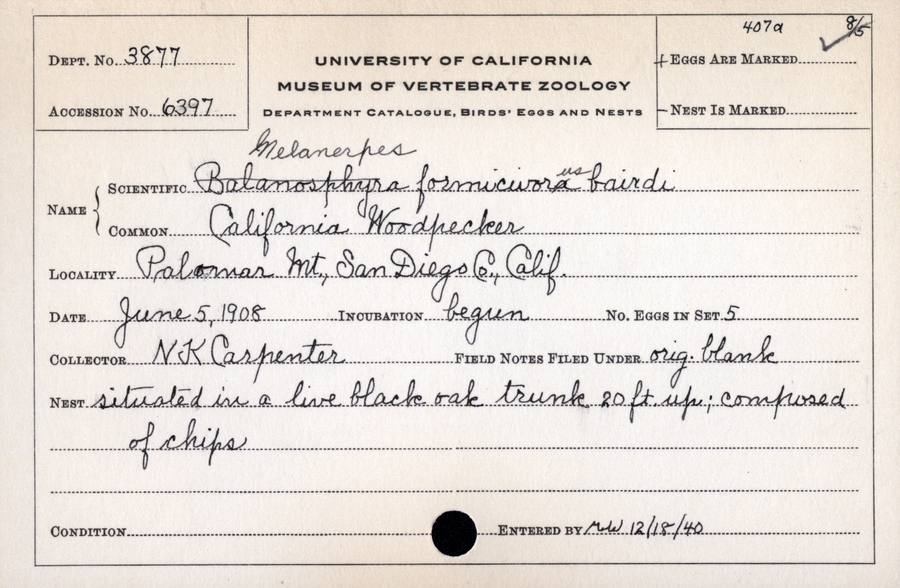 407a 8/5
Dept. No. 3877
UNIVERSITY OF CALIFORNIA
+ Eggs Are Marked
MUSEUM OF VERTEBRATE ZOOLOGY
Accession No. 6397
Department Catalogue, Birds' Eggs and Nests
– Nest Is Marked
Melanerpes
Name { Scientific Balanosphyra formicivora us bairdi
Common California Woodpecker
Locality Palomar Mt., San Diego Co., Calif.
Date June 5, 1908 Incubation begun No. Eggs in Set 5
Collector N K Carpenter Field Notes Filed Under orig. blank
Nest situated in a live black oak trunk 20 ft. up; composed
of chips
Condition Entered by 12/18/40